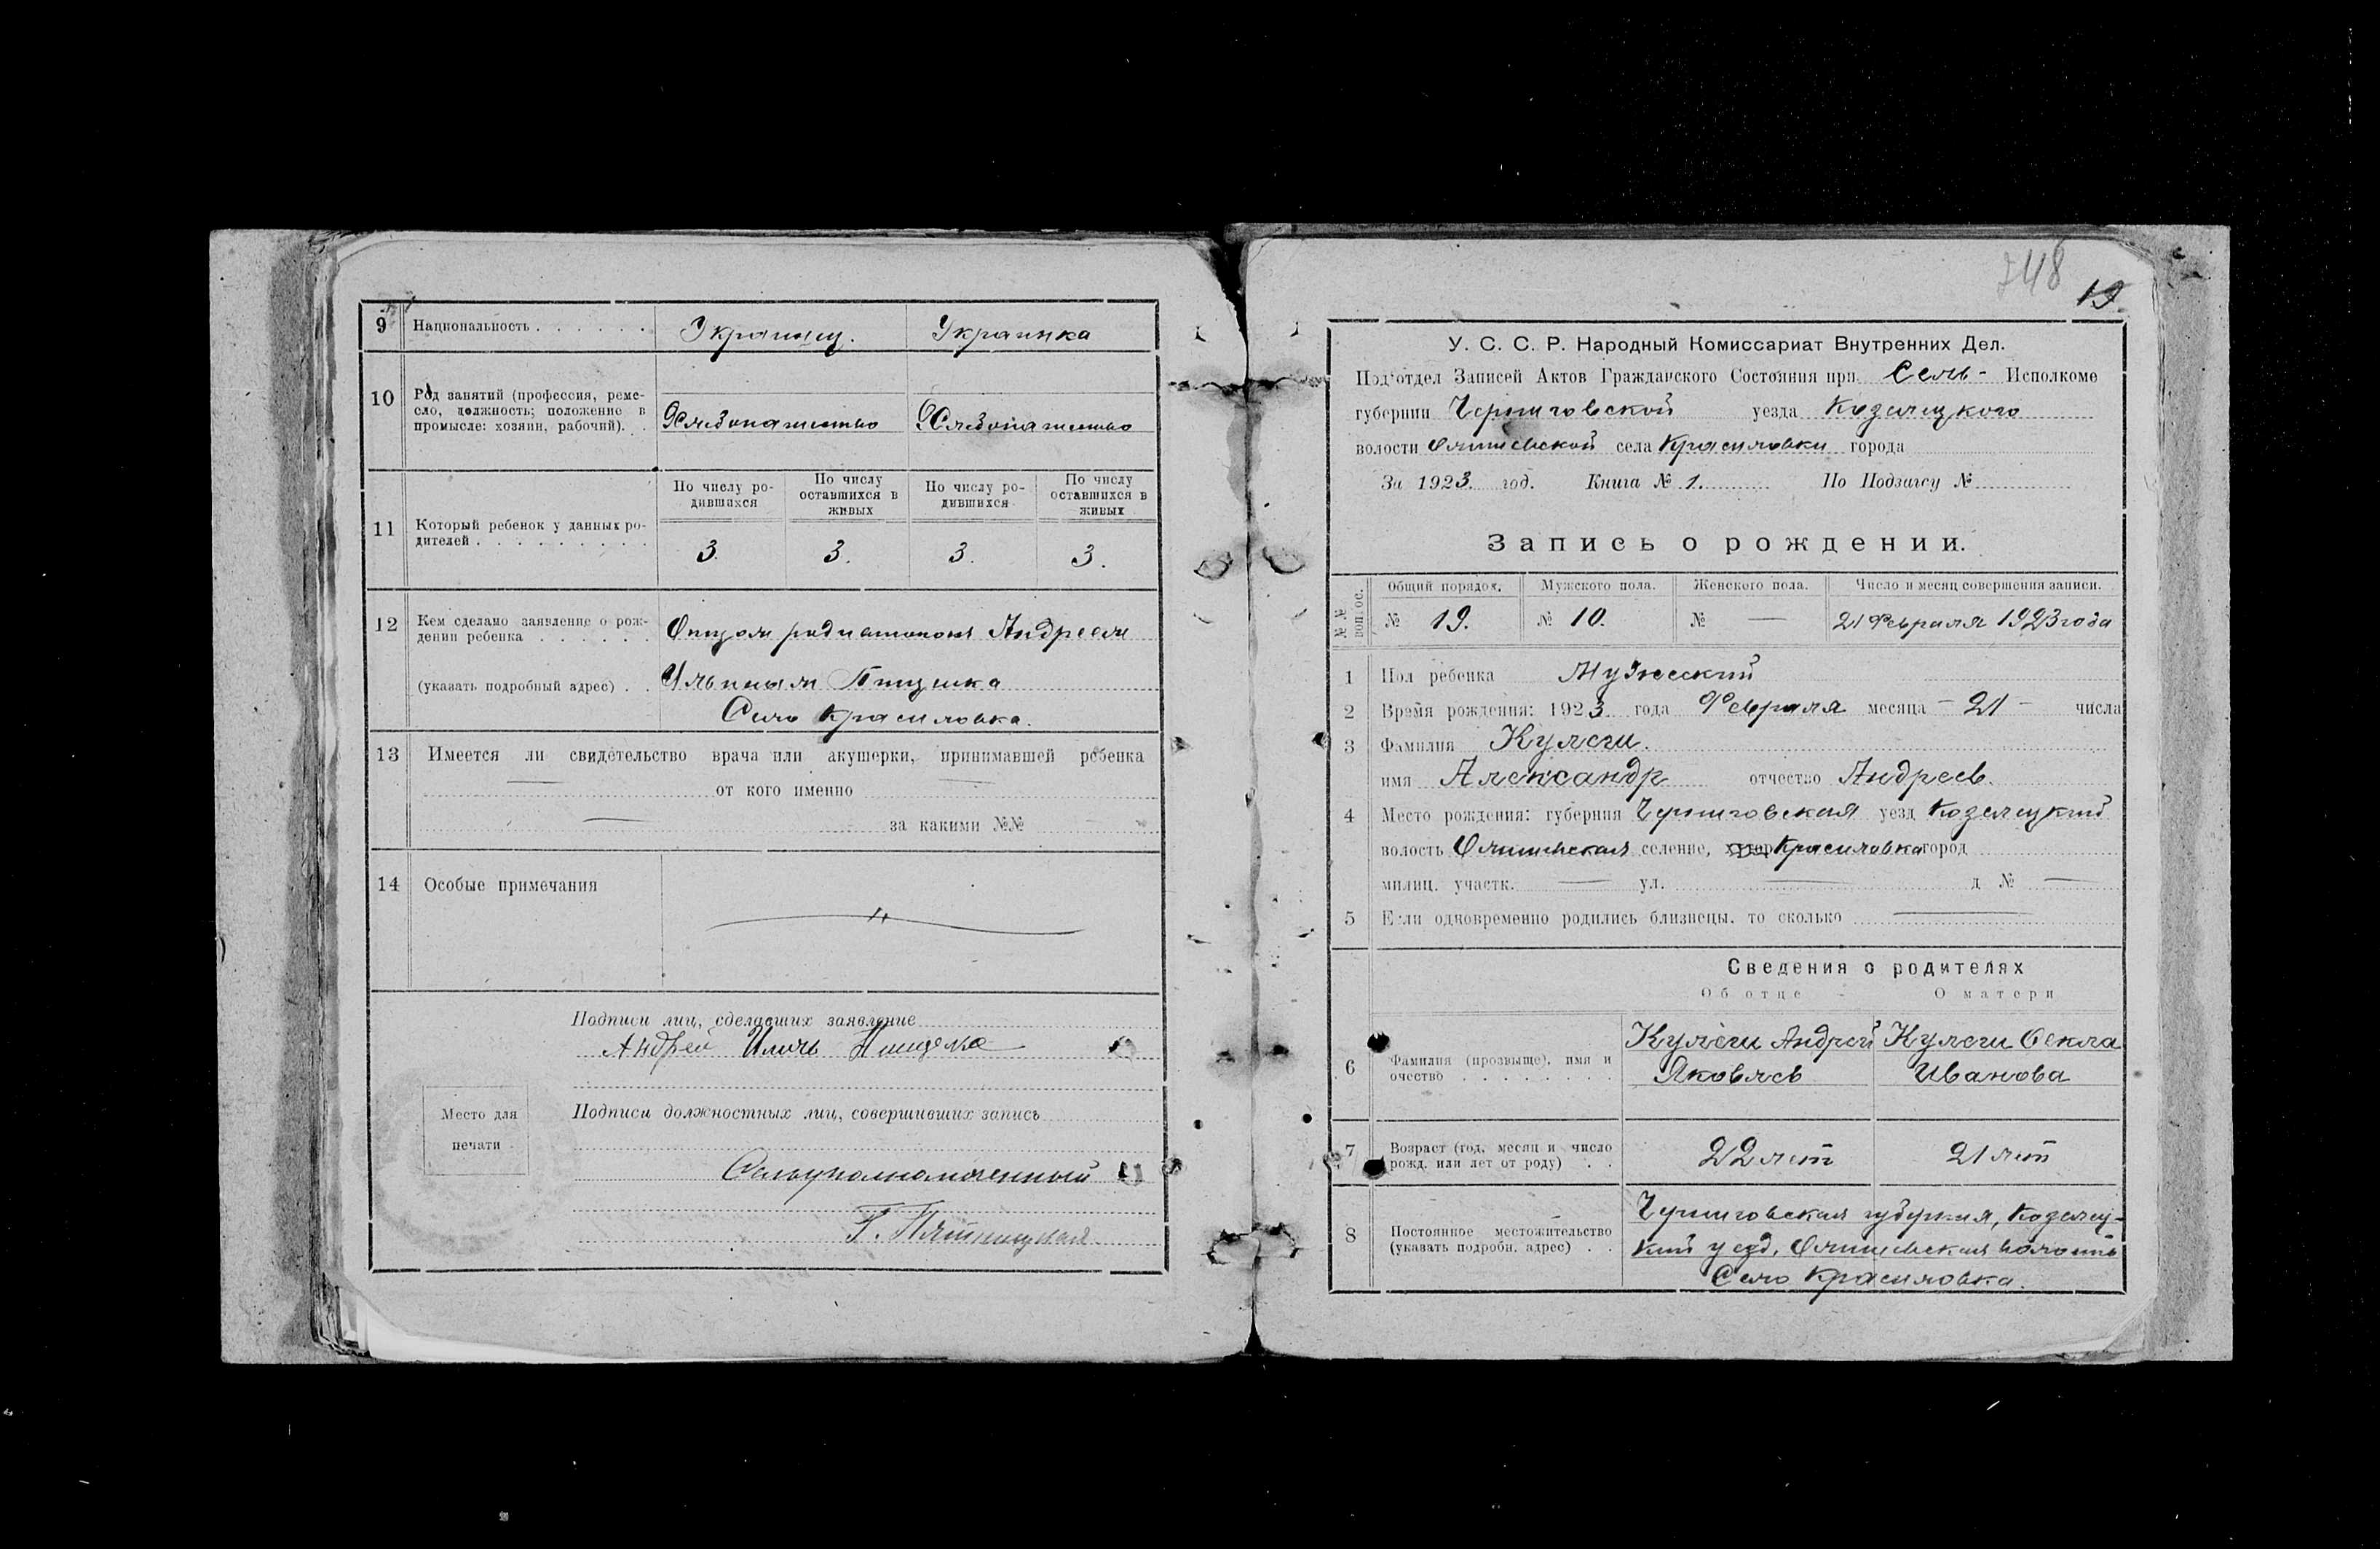 9 Национальность . . . . . . Украинец. Украинка
10 Род занятий (профессия, ремесло, должность; положение в промысле: хозяин, рабочий). . Хлебопашество Хлебопашество
11 Который ребенок у данных родителей . . . . . . . . .
По числу родившихся По числу оставшихся в живых По числу родившихся По числу оставшихся в живых
3. 3. 3. 3.
12 Кем сделано заявление о рождении ребенка . . . . . . Отцом Андреем
(указать подробный адрес) . . Ильиным
Село Красиловка.
13 Имеется ли свидетельство врача или акушерки, принимавшей ребенка
от кого именно
за какими №№
14 Особые примечания
Подписи лиц, сделавших заявление
Андрей
Место для печати
Подписи должностных лиц, совершивших запись
Сельуполномоченный
Г. Пятницкая
748
19
У. С. С. Р. Народный Комиссариат Внутренних Дел.
Под'отдел Записей Актов Гражданского Состояния при Сель- Исполкоме
губернии Черниговской уезда Козелецкого
волости Олишевской села Красиловки города
За 1923 год. Книга № 1. По Подзагсу №
Запись о рождении.
№№ вопрос. Общий порядок. Мужского пола. Женского пола. Число и месяц совершения записи.
№ 19. № 10. № — 21 Февраля 1923 года
1 Пол ребенка Мужеский
2 Время рождения: 1923 года Февраля месяца - 21 - числа
3 Фамилия
имя Александр отчество Андреев.
4 Место рождения: губерния Черниговская уезд Козелецкий
волость Олишевская селение, хутор Красиловка город
милиц. участк. — ул. — д № —
5 Если одновременно родились близнецы, то сколько —
Сведения о родителях
Об отце О матери
6 Фамилия (прозвыще), имя и очество . . . . . . . . Андрей Яковлев Фекла Иванова
7 Возраст (год, месяц и число рожд. или лет от роду) . . 22 лет 21 лет
8 Постоянное местожительство (указать подробн. адрес) . .
Черниговская губерния, Козелец-
кий уезд, Олишевская волость
Село Красиловка.